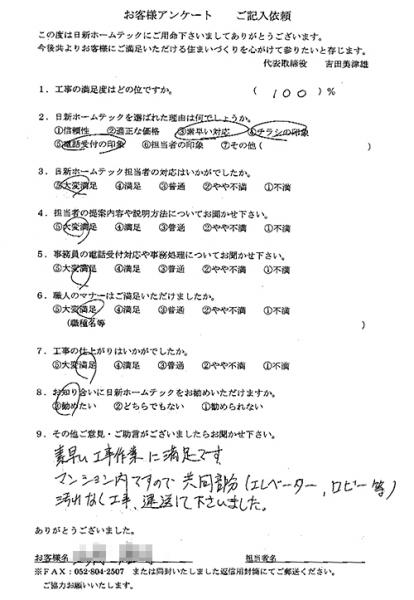 お客様アンケート　ご記入依頼
この度は日新ホームテックにご用命下さいましてありがとうございます。
今後共よりお客様にご満足いただける住まいづくりを心がけて参りたいと存じます。
代表取締役　吉田美津雄
1．工事の満足度はどの位ですか。　（ 100 ）％
2．日新ホームテックを選ばれた理由は何でしょうか。
①信頼性　②適正な価格　③素早い対応　④チラシの印象
⑤電話受付の印象　⑥担当者の印象　⑦その他（　）
3．日新ホームテック担当者の対応はいかがでしたか。
⑤大変満足　④満足　③普通　②やや不満　①不満
4．担当者の提案内容や説明方法についてお聞かせ下さい。
⑤大変満足　④満足　③普通　②やや不満　①不満
5．事務員の電話受付対応や事務処理についてお聞かせ下さい。
⑤大変満足　④満足　③普通　②やや不満　①不満
6．職人のマナーはご満足いただけましたか。
⑤大変満足　④満足　③普通　②やや不満　①不満
（職種名等　）
7．工事の仕上がりはいかがでしたか。
⑤大変満足　④満足　③普通　②やや不満　①不満
8．お知り合いに日新ホームテックをお勧めいただけますか。
③勧めたい　②どちらでもない　①勧められない
9．その他ご意見・ご助言がございましたらお聞かせ下さい。
素早い工事作業に満足です
マンション内ですので共同部分（エレベーター，ロビー等）
汚れなく工事、運送して下さいました。
ありがとうございました。
お客様名　担当者名
※FAX：052-804-2507　または同封いたしました返信用封筒にてご郵送ください。
ご協力お願いいたします。